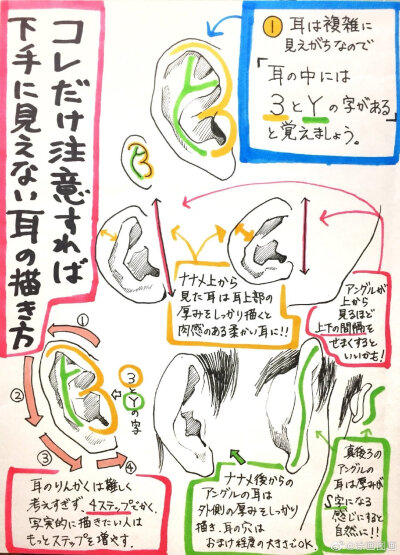 コレだけ注意すれば
下手に見えない耳の描き方
① 耳は複雑に
見えがちなので
「耳の中には
3とYの字がある」
と覚えましょう。
ナナメ上から
見た耳は耳上部の
厚みをしっかり描くと
肉感のある柔かい耳に!!
アングルが
上から
見るほど
上下の間隔を
せまくすると
いいかも!
①
②
③
④
3
と
Y
の字
耳のりんかくは難しく
考えすぎず、4ステップでかく。
写実的に描きたい人は
もっとステップを増やす。
ナナメ後からの
アングルの耳は
外側の厚みをしっかり
描き、耳の穴は
おまけ程度の大きさでOK
S
真後ろの
アングルの
耳は厚みが
S字になる
感じにすると
自然に!!